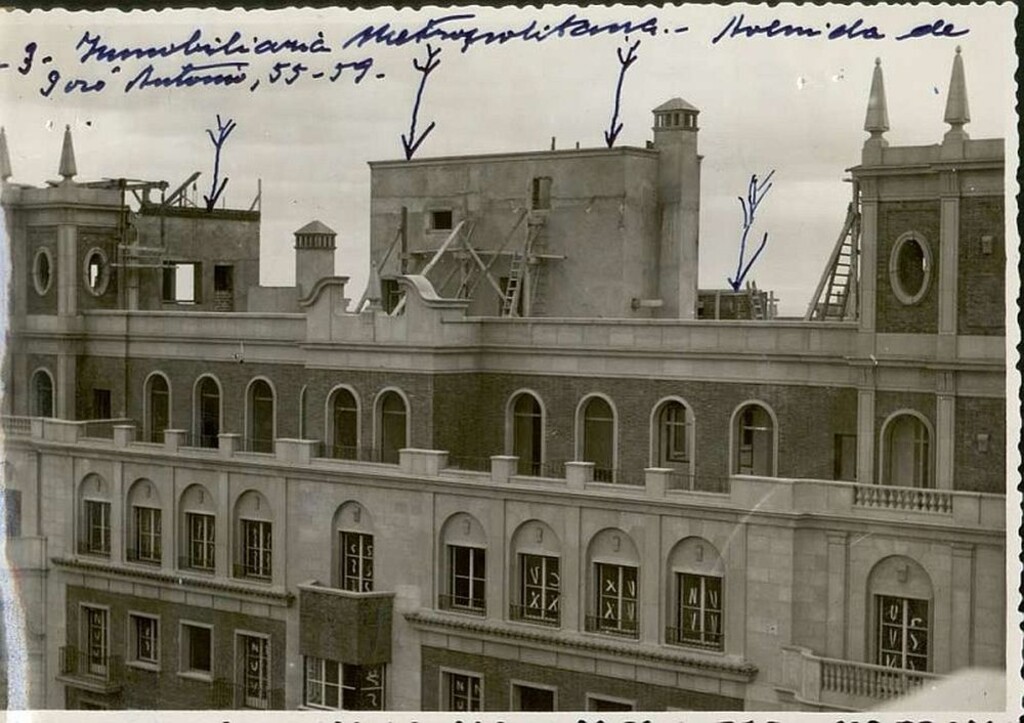 - 3. - Inmobiliaria Metropolitana.- Avenida de
José Antonio, 55-59.-